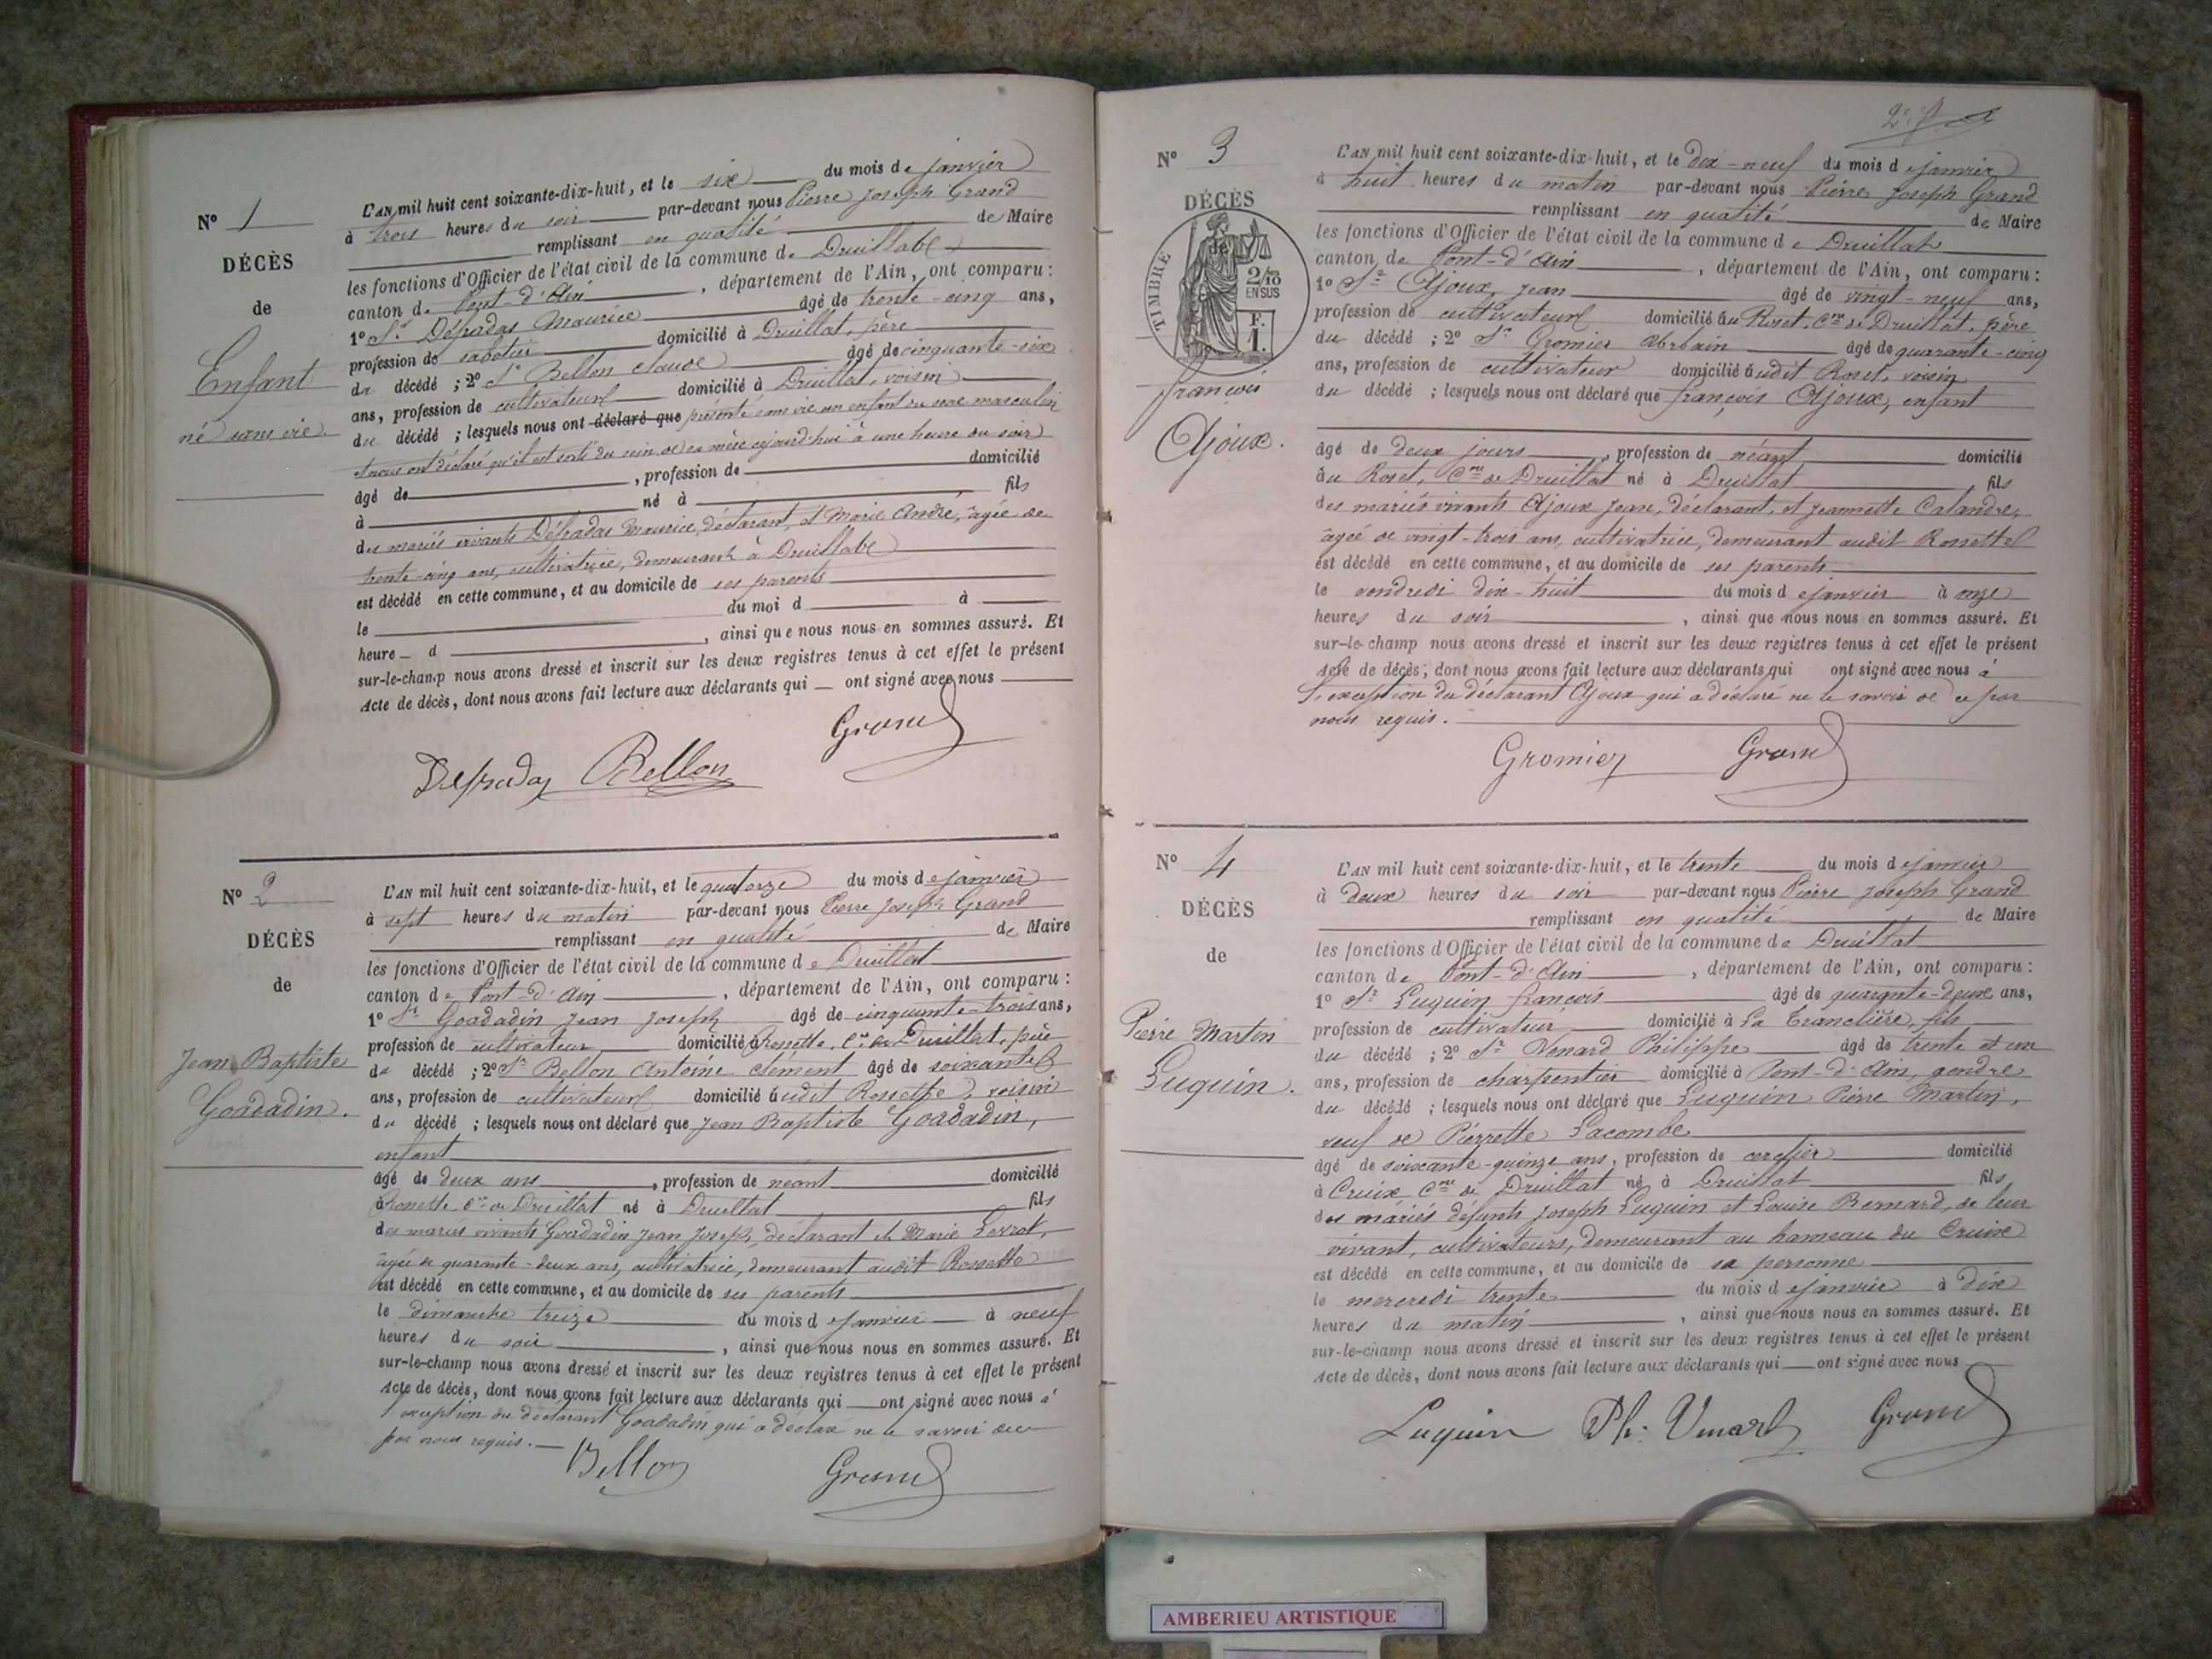 N° 1
DÉCÈS
de
Enfant
né sans vie.
L'AN mil huit cent soixante-dix-huit, et le six du mois de janvier
à trois heures du soir par-devant nous Pierre Joseph Grand
remplissant en qualité de Maire
les fonctions d'Officier de l'état civil de la commune de Druillat
canton de Pont-d'Ain, département de l'Ain, ont comparu :
1° Sr Défradas Maurice âgé de trente-cinq ans,
profession de sabotier domicilié à Druillat, père
du décédé ; 2° Sr Bellon Claude âgé de cinquante-six
ans, profession de cultivateur domicilié à Druillat, voisin
du décédé ; lesquels nous ont déclaré que présenté sans vie un enfant du sexe masculin
et nous ont déclaré qu'il est sorti du sein de sa mère aujourd'hui à une heure du soir
âgé de , profession de domicilié
à né à fils
des mariés vivants Défradas Maurice, déclarant, et Marie André, âgée de
trente-cinq ans, cultivatrice, demeurant à Druillat
est décédé en cette commune, et au domicile de ses parents
le du moi d à
heure d , ainsi que nous nous en sommes assuré. Et
sur-le-champ nous avons dressé et inscrit sur les deux registres tenus à cet effet le présent
Acte de décès, dont nous avons fait lecture aux déclarants qui ont signé avec nous
Grand
Defradas Bellon
N° 2
DÉCÈS
de
Jean Baptiste
Goadadin.
L'AN mil huit cent soixante-dix-huit, et le quatorze du mois de janvier
à sept heures du matin par-devant nous Pierre Joseph Grand
remplissant en qualité de Maire
les fonctions d'Officier de l'état civil de la commune de Druillat
canton de Pont-d'Ain, département de l'Ain, ont comparu :
1° Sr Goadadin Jean Joseph âgé de cinquante-trois ans,
profession de cultivateur domicilié à Rossette, Cne de Druillat, père
du décédé ; 2° Sr Bellon Antoine Clément âgé de soixante
ans, profession de cultivateur domicilié audit Rossette, voisin
du décédé ; lesquels nous ont déclaré que Jean Baptiste Goadadin,
enfant
âgé de deux ans, profession de néant domicilié
à Rossette, Cne de Druillat né à Druillat fils
des mariés vivants Goadadin Jean Joseph, déclarant et Marie
âgée de quarante-deux ans, cultivatrice, demeurant audit Rossette
est décédé en cette commune, et au domicile de ses parents
le dimanche treize du mois de janvier à neuf
heures du soir, ainsi que nous nous en sommes assuré. Et
sur-le-champ nous avons dressé et inscrit sur les deux registres tenus à cet effet le présent
Acte de décès, dont nous avons fait lecture aux déclarants qui ont signé avec nous à
l'exception du déclarant Goadadin qui a déclaré ne le savoir de ce
par nous requis.
Bellon Grand
N° 3
DÉCÈS
de
TIMBRE
2/10
EN SUS
F.
1.
françois
Ajoux.
L'AN mil huit cent soixante-dix-huit, et le dix-neuf du mois de janvier
à huit heures du matin par-devant nous Pierre Joseph Grand
remplissant en qualité de Maire
les fonctions d'Officier de l'état civil de la commune de Druillat
canton de Pont-d'Ain, département de l'Ain, ont comparu :
1° Sr Ajoux Jean âgé de vingt-neuf ans,
profession de cultivateur domicilié au Roset, Cne de Druillat, père
du décédé ; 2° Sr Gromier âgé de quarante-cinq
ans, profession de cultivateur domicilié audit Roset, voisin
du décédé ; lesquels nous ont déclaré que françois Ajoux, enfant
âgé de deux jours, profession de néant domicilié
au Roset, Cne de Druillat né à Druillat fils
des mariés vivants Ajoux Jean, déclarant, et Jeannette Calandre,
âgée de vingt-trois ans, cultivatrice, demeurant audit Rossettel
est décédé en cette commune, et au domicile de ses parents
le vendredi dix-huit du mois de janvier à onze
heures du soir, ainsi que nous nous en sommes assuré. Et
sur-le-champ nous avons dressé et inscrit sur les deux registres tenus à cet effet le présent
Acte de décès, dont nous avons fait lecture aux déclarants qui ont signé avec nous à
l'exception du déclarant Ajoux qui a déclaré ne le savoir de ce par
nous requis.
Gromier Grand
N° 4
DÉCÈS
de
Pierre Martin
Luquin.
L'AN mil huit cent soixante-dix-huit, et le trente du mois de janvier
à deux heures du soir par-devant nous Pierre Joseph Grand
remplissant en qualité de Maire
les fonctions d'Officier de l'état civil de la commune de Druillat
canton de Pont-d'Ain, département de l'Ain, ont comparu :
1° Sr Luquin françois âgé de quarante-deux ans,
profession de cultivateur domicilié à La Tranclière, fils
du décédé ; 2° Sr Venard Philippe âgé de trente et un
ans, profession de charpentier domicilié à Pont-d'Ain, gendre
du décédé ; lesquels nous ont déclaré que Luquin Pierre Martin,
veuf de Pierrette Lacombe
âgé de soixante-quinze ans, profession de domicilié
à Cruix Cne de Druillat né à Druillat fils
des mariés défunts Joseph Luquin et Louise Bernard, de leur
vivant, cultivateurs, demeurant au hameau du Cruix
est décédé en cette commune, et au domicile de sa personne
le mercredi trente du mois de janvier à dix
heures du matin, ainsi que nous nous en sommes assuré. Et
sur-le-champ nous avons dressé et inscrit sur les deux registres tenus à cet effet le présent
Acte de décès, dont nous avons fait lecture aux déclarants qui ont signé avec nous
Luquin Ph. Venard Grand
AMBERIEU ARTISTIQUE